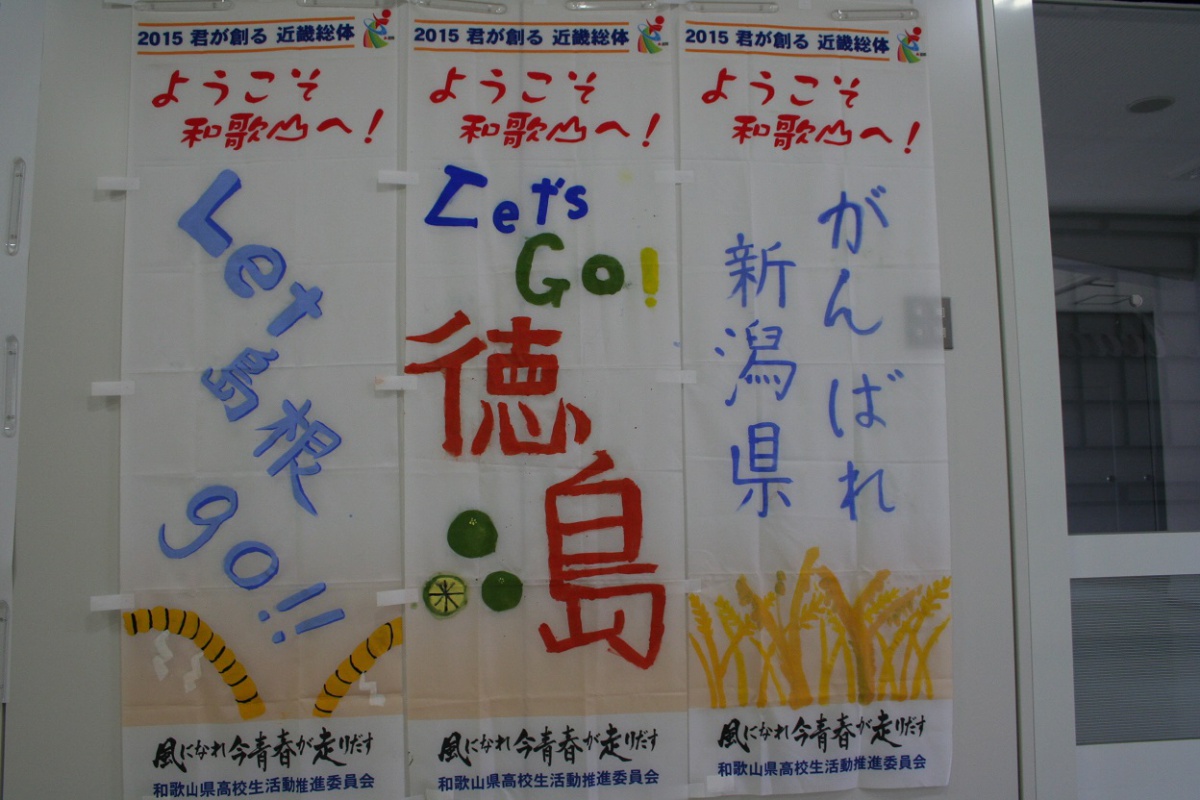 2015 君が創る 近畿総体
ようこそ
和歌山へ!
Let
島根
go!!
風になれ今青春が走りだす
和歌山県高校生活動推進委員会
2015 君が創る 近畿総体
ようこそ
和歌山へ!
Let's
Go!
徳島
風になれ今青春が走りだす
和歌山県高校生活動推進委員会
2015 君が創る 近畿総体
ようこそ
和歌山へ!
がんばれ
新潟県
風になれ今青春が走りだす
和歌山県高校生活動推進委員会